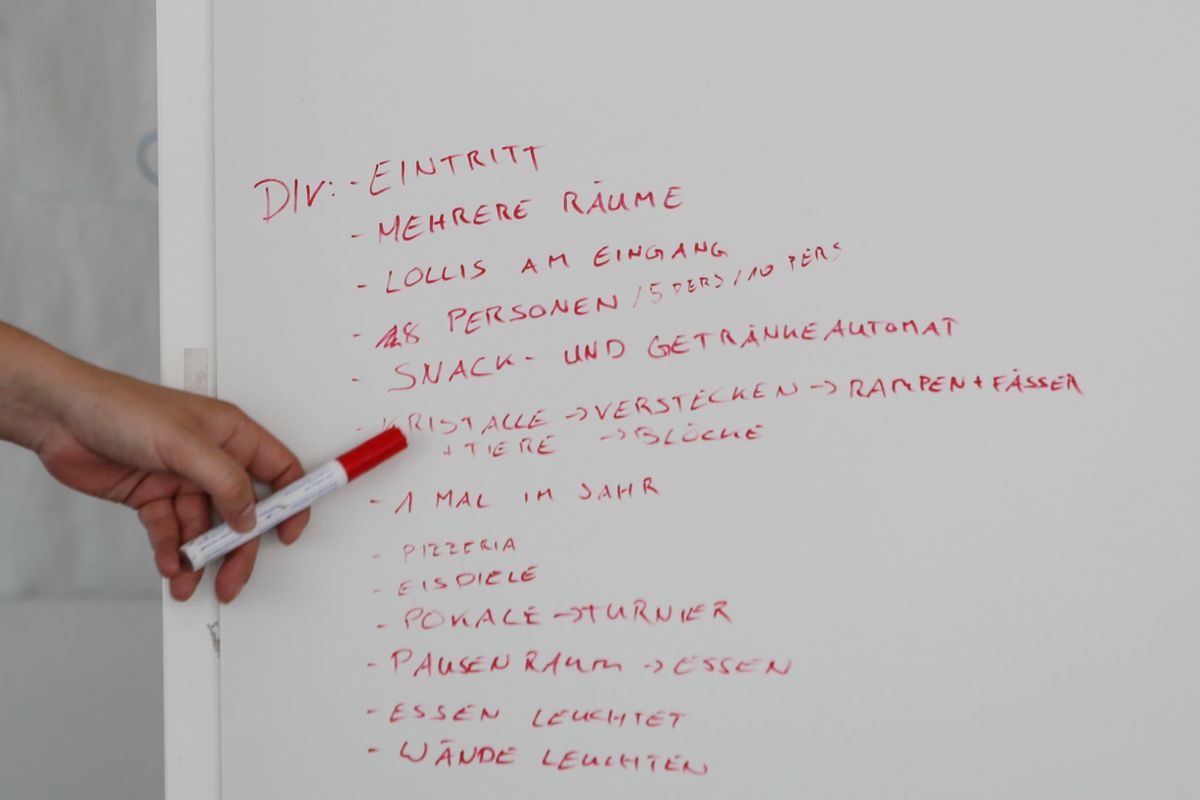 DIV: - EINTRITT
- MEHRERE RÄUME
- LOLLIS AM EINGANG
- 18 PERSONEN / 5 PERS / 10 PERS
- SNACK- UND GETRÄNKEAUTOMAT
- KRISTALLE → VERSTECKEN → RAMPEN + FÄSSER
+ TIERE → BLÖCKE
- 1 MAL IM JAHR
- PIZZERIA
- EISDIELE
- POKALE → TURNIER
- PAUSENRAUM → ESSEN
- ESSEN LEUCHTET
- WÄNDE LEUCHTEN